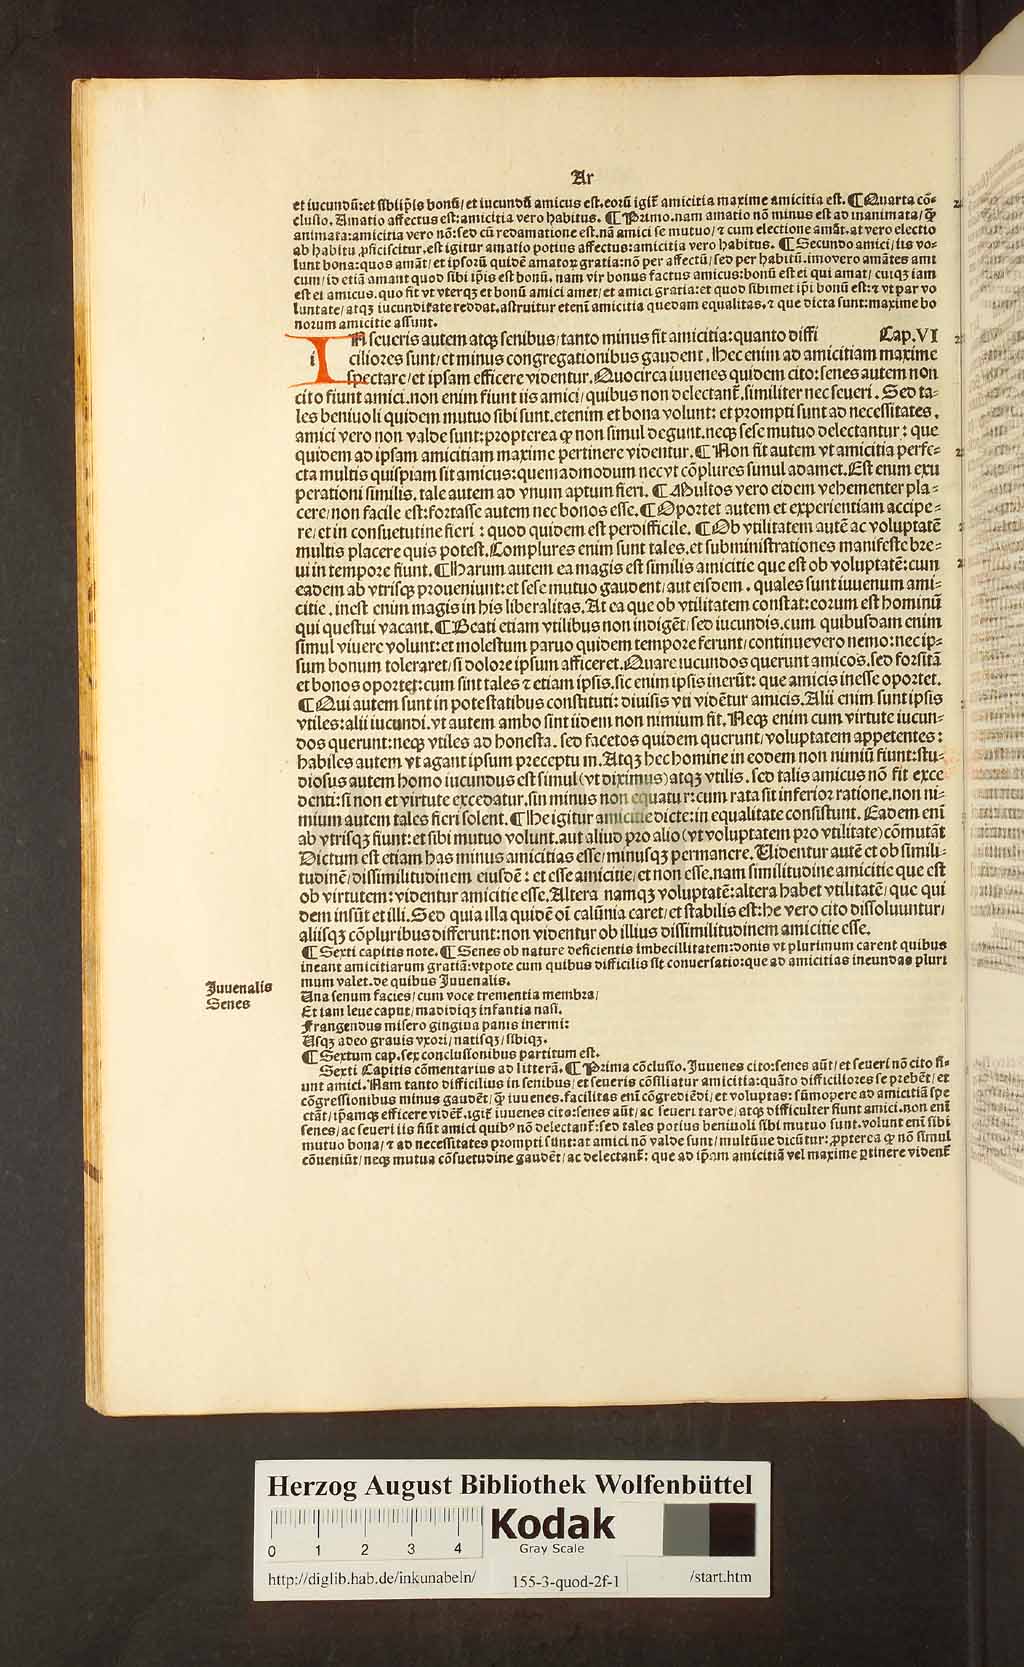 Ar
et iucundū:et sibiip̄is bonū/et iucundū amicus est.eorū igit̄ amicitia maxime amicitia est. ¶Quarta cō=
clusio. Amatio affectus est:amicitia vero habitus. ¶Primo.nam amatio nō minus est ad inanimata/q̄
animata:amicitia vero nō:sed cū redamatione est.nā amici se mutuo/⁊ cum electione amāt.at vero electio
ab habitu ꝓficiscitur.est igitur amatio potius affectus:amicitia vero habitus. ¶Secundo amici/iis vo=
lunt bona:quos amāt/et ipsorū quidē amatoꝝ gratia:nō per affectū/sed per habitū.imovero amātes ami
cum/id etiā amant quod sibi ip̄is est bonū. nam vir bonus factus amicus:bonū est ei qui amat/cuiqꝫ iam
est ei amicus.quo fit vt vterqꝫ et bonū amici amet/et amici gratia:et quod sibimet ip̄i bonū est:⁊ vt par vo
luntate/atqꝫ iucunditate reddat.astruitur etenī amicitia quedam equalitas.⁊ que dicta sunt:maxime bo
norum amicitie assunt.
iIN seueris autem atqꝫ senibus/tanto minus fit amicitia:quanto diffi Cap.VI
ciliores sunt/et minus congregationibus gaudent. Hec enim ad amicitiam maxime
spectare/et ipsam efficere videntur. Quocirca iuuenes quidem cito:senes autem non
cito fiunt amici.non enim fiunt iis amici/quibus non delectant̄.similiter nec seueri. Sed ta=
les beniuoli quidem mutuo sibi sunt.etenim et bona volunt: et prompti sunt ad necessitates.
amici vero non valde sunt:propterea ꝙ non simul degunt.neqꝫ sese mutuo delectantur: que
quidem ad ipsam amicitiam maxime pertinere videntur. ¶Non fit autem vt amicitia perfe=
cta multis quispiam sit amicus:quemadmodum nec vt cōplures simul adamet. Est enim exu
perationi similis. tale autem ad vnum aptum fieri. ¶Multos vero eidem vehementer pla=
cere/non facile est:fortasse autem nec bonos esse. ¶Oportet autem et experientiam accipe=
re/et in consuetutine fieri: quod quidem est perdifficile. ¶Ob vtilitatem autē ac voluptatē
multis placere quis potest. Complures enim sunt tales.et subministrationes manifeste bre=
ui in tempore fiunt. ¶Harum autem ea magis est similis amicitie que est ob voluptatē:cum
eadem ab vtrisqꝫ proueniunt:et sese mutuo gaudent/aut eisdem. quales sunt iuuenum ami=
citie. inest enim magis in his liberalitas. At ea que ob vtilitatem constat:eorum est hominū
qui questui vacant. ¶Beati etiam vtilibus non indigēt/sed iucundis.cum quibusdam enim
simul viuere volunt:et molestum paruo quidem tempore ferunt/continue vero nemo:nec ip=
sum bonum toleraret/si dolore ipsum afficeret. Quare iucundos querunt amicos.sed forsitā
et bonos oportet:cum sint tales ⁊ etiam ipsis.sic enim ipsis inerūt: que amicis inesse oportet.
¶Qui autem sunt in potestatibus constituti: diuisis vti vidētur amicis. Alii enim sunt ipsis
vtiles:alii iucundi.vt autem ambo sint iidem non nimium fit. Neqꝫ enim cum virtute iucun=
dos querunt:neqꝫ vtiles ad honesta. sed facetos quidem querunt/voluptatem appetentes:
habiles autem vt agant ipsum preceptum. Atqꝫ hec homine in eodem non nimiū fiunt:stu=
diosus autem homo iucundus est simul(vt diximus)atqꝫ vtilis. sed talis amicus nō fit exce
denti:si non et virtute excedatur.sin minus non equatur:cum rata sit inferior ratione.non ni=
mium autem tales fieri solent. ¶He igitur amicitie dicte:in equalitate consistunt. Eadem enī
ab vtrisqꝫ fiunt:et sibi mutuo volunt.aut aliud pro alio(vt voluptatem pro vtilitate)cōmutāt
Dictum est etiam has minus amicitias esse/minusqꝫ permanere. Videntur autē et ob simili=
tudinē/dissimilitudinem eiusdē: et esse amicitie/et non esse.nam similitudine amicitie que est
ob virtutem:videntur amicitie esse. Altera namqꝫ voluptatē:altera habet vtilitatē/que qui
dem insūt et illi. Sed quia illa quidē oī calūnia caret/et stabilis est:he vero cito dissoluuntur/
aliisqꝫ cōpluribus differunt:non videntur ob illius dissimilitudinem amicitie esse.
¶Sexti capitis note. ¶Senes ob nature deficientis imbecillitatem:donis vt plurimum carent quibus
ineant amicitiarum gratiā:vtpote cum quibus difficilis sit conuersatio:que ad amicitias ineundas pluri
mum valet.de quibus Juuenalis.
Juuenalis
Senes
Una senum facies/cum voce trementia membra/
Et iam leue caput/madidiqꝫ infantia nasi.
Frangendus misero gingiua panis inermi:
Usqꝫ adeo grauis vxori/natisqꝫ/sibiqꝫ.
¶Sextum cap.sex conclusionibus partitum est.
Sexti Capitis cōmentarius ad litterā. ¶Prima cōclusio. Juuenes cito:senes aūt/et seueri nō cito fi=
unt amici. Nam tanto difficilius in senibus/et seueris cōsiliatur amicitia:quāto difficiliores se prebēt/et
cōgressionibus minus gaudēt/q̄ iuuenes.facilitas enī cōgrediēdi/et voluptas: sūmopere ad amicitiā spe
ctāt/ip̄amqꝫ efficere vidēt̄.igit̄ iuuenes cito:senes aūt/ac seueri tarde/atqꝫ difficulter fiunt amici.non enī
senes/ac seueri iis fiūt amici quibꝰ nō delectant̄:sed tales potius beniuoli sibi mutuo sunt.volunt enī sibi
mutuo bona/⁊ ad necessitates prompti sūnt:at amici nō valde sunt/multūue dicūtur:ꝓpterea ꝙ nō simul
cōueniūt/neqꝫ mutua cōsuetudine gaudēt/ac delectant̄: que ad ip̄am amicitiā vel maxime ꝑtinere vident̄
Herzog August Bibliothek Wolfenbüttel
0 1 2 3 4
Kodak
Gray Scale
http://diglib.hab.de/inkunabeln/ 155-3-quod-2f-1 /start.htm